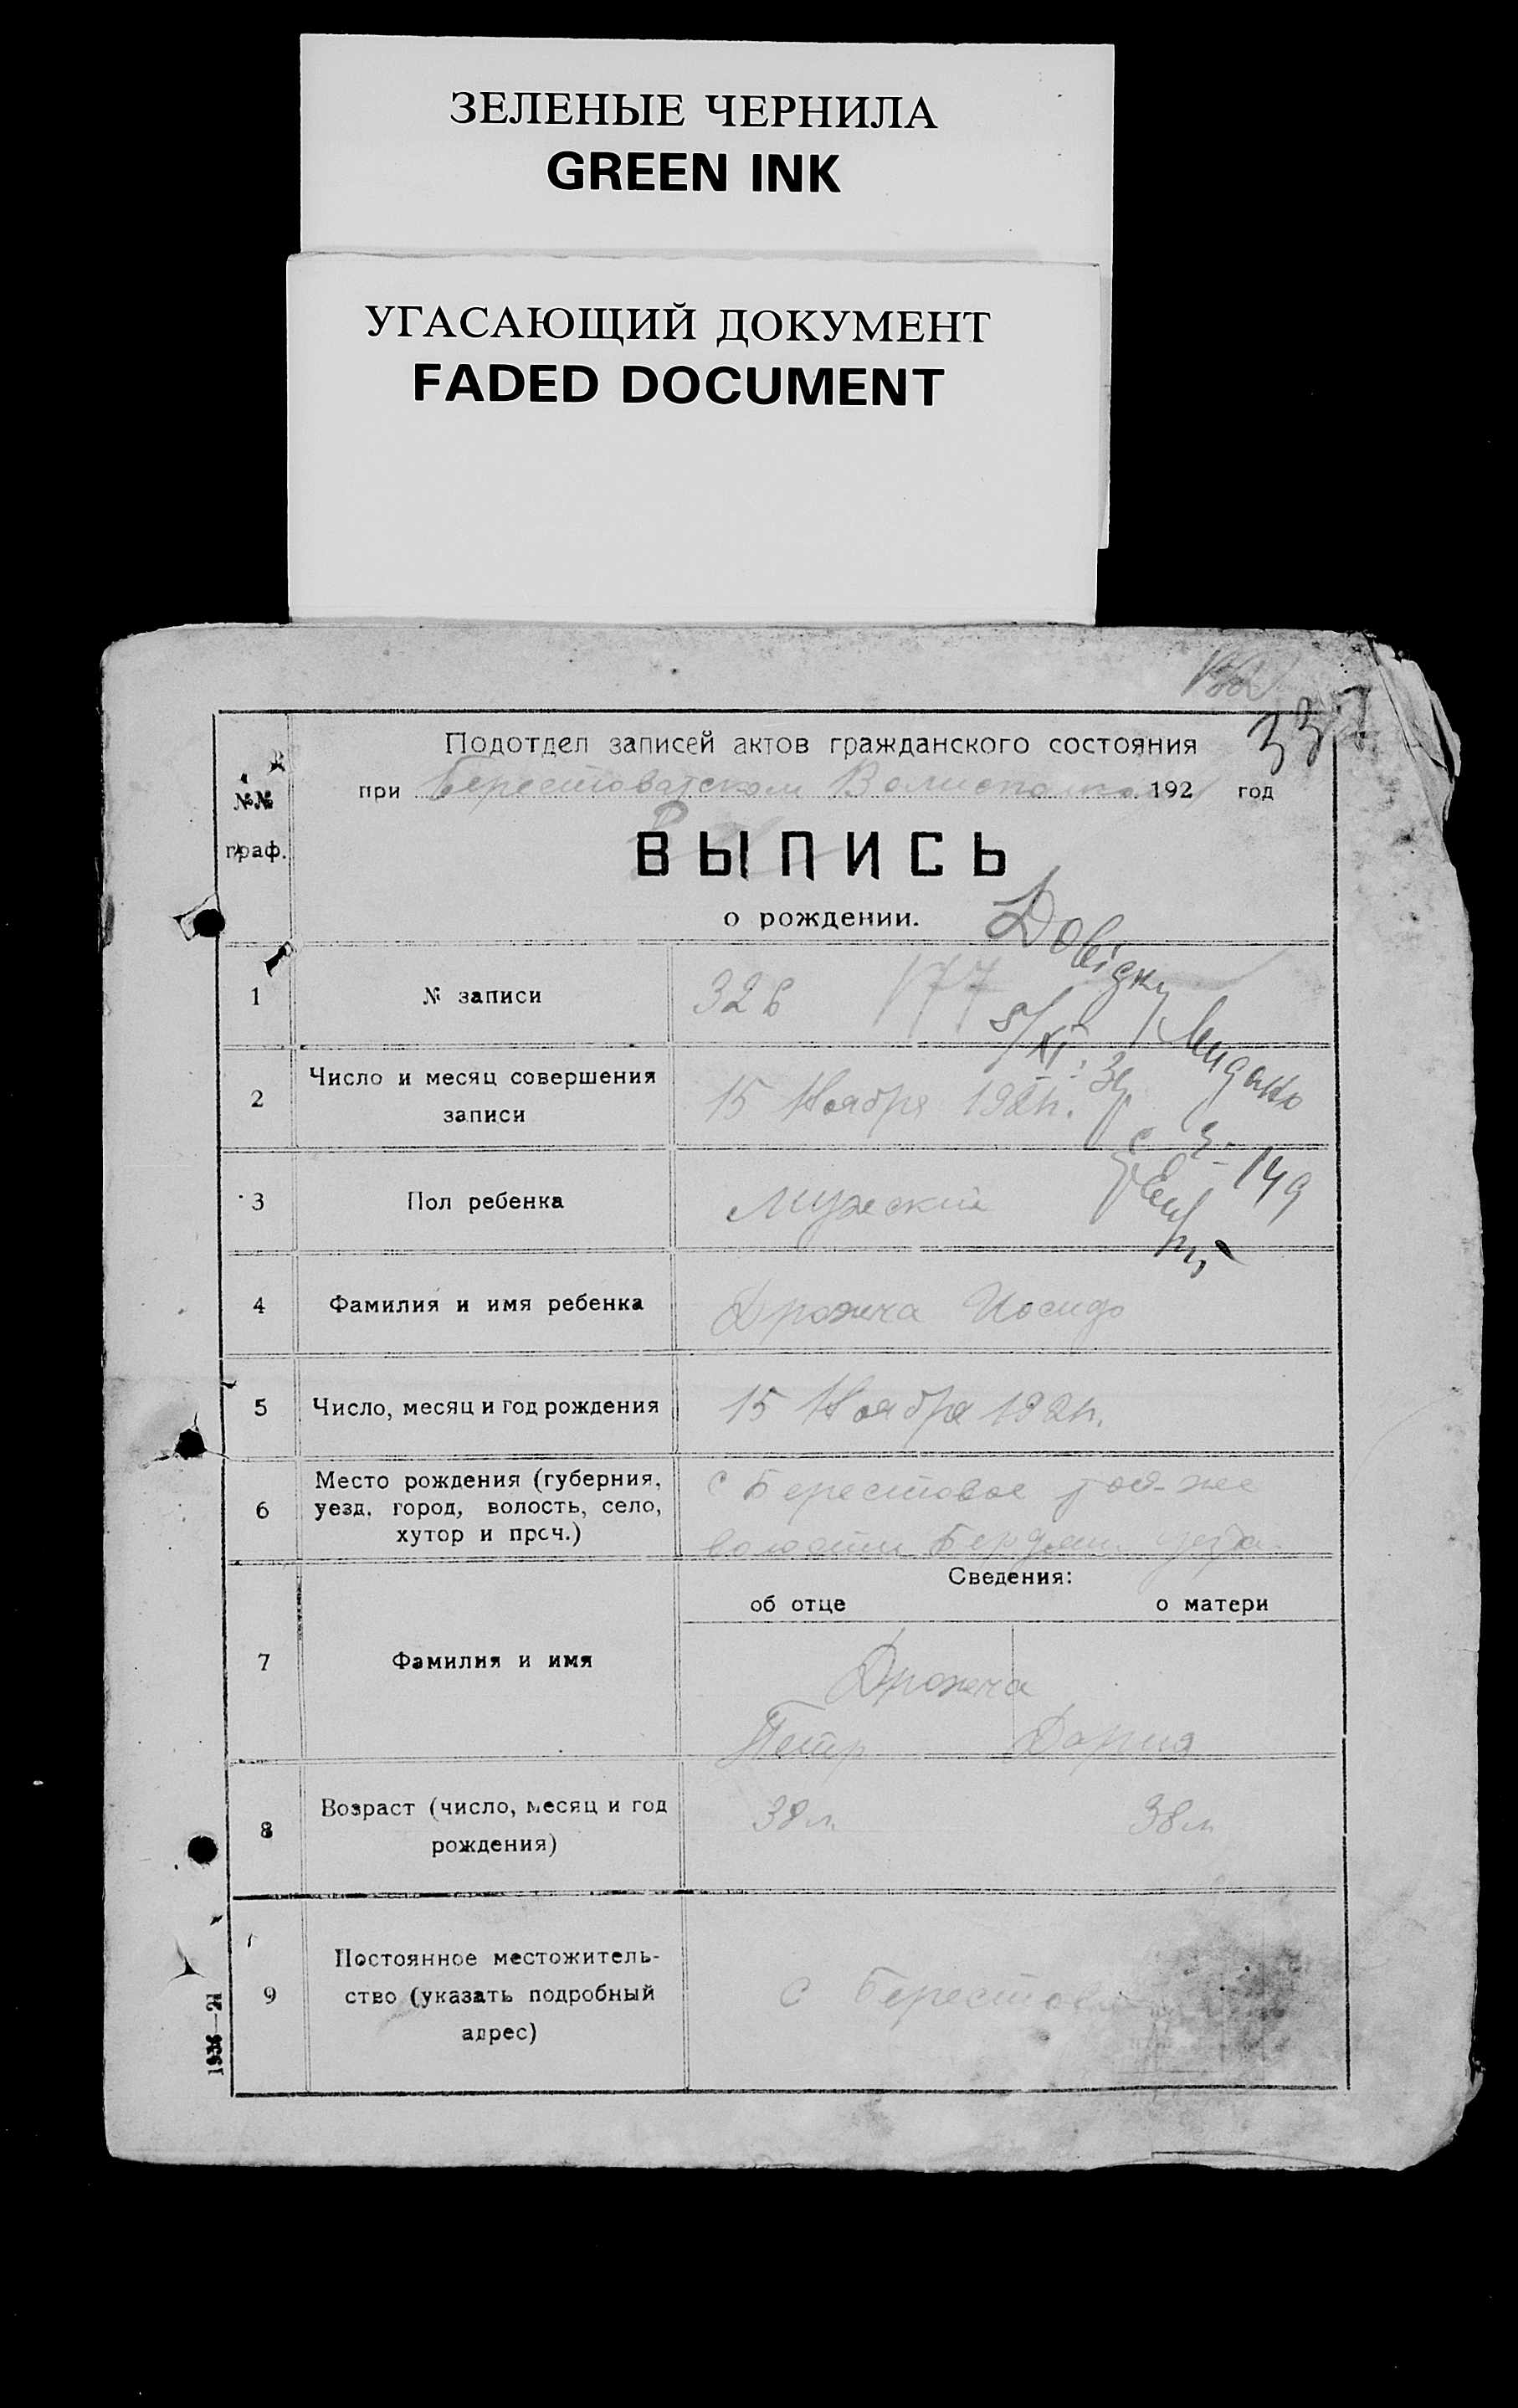 ЗЕЛЕНЫЕ ЧЕРНИЛА
GREEN INK
УГАСАЮЩИЙ ДОКУМЕНТ
FADED DOCUMENT
337
Подотдел записей актов гражданского состояния
при Берестоватском 192 год
№№
граф.
ВЫПИСЬ
о рождении.
Довідку
1 № записи 326 177
видано
2 Число и месяц совершения
записи
15 Ноября 1921 г.
149
3 Пол ребенка мужеский
4 Фамилия и имя ребенка Дрожча Иосиф
5 Число, месяц и год рождения 15 Ноября 1921 г.
6 Место рождения (губерния,
уезд, город, волость, село,
хутор и проч.)
с Берестовое той-же
волости Бердян. уезда
Сведения:
об отце о матери
7 Фамилия и имя Дрожча
Петр Дария
8 Возраст (число, месяц и год
рождения)
38 л 38 л
9 Постоянное местожитель-
ство (указать подробный
адрес)
с Берестовое
1936—21